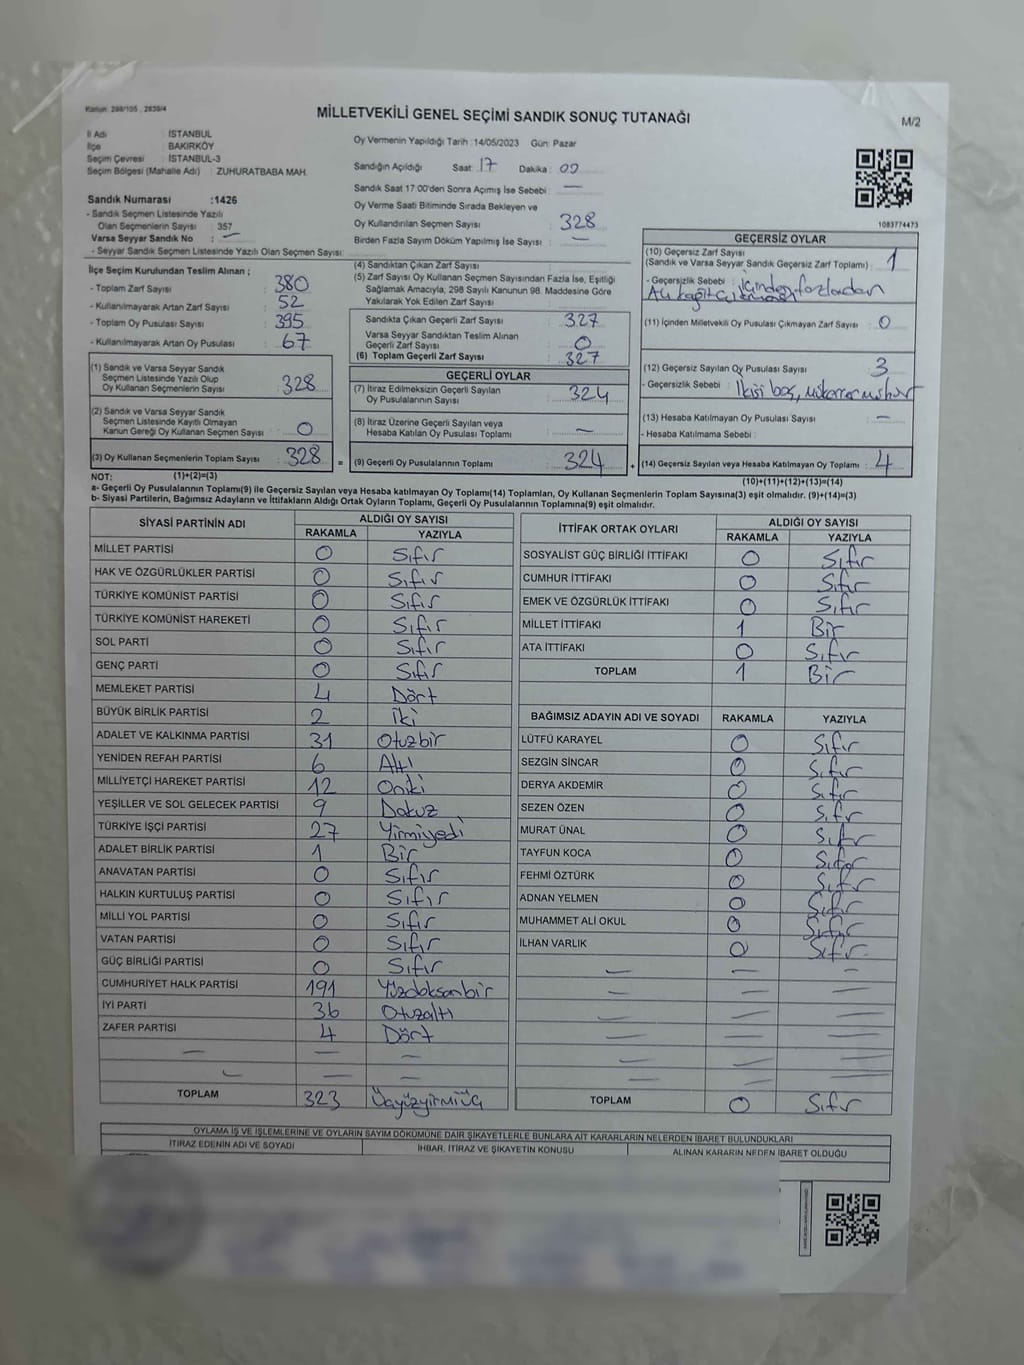 Kanun: 298/105 , 2839/4
MİLLETVEKİLİ GENEL SEÇİMİ SANDIK SONUÇ TUTANAĞI
M/2
İl Adı : İSTANBUL
İlçe : BAKIRKÖY
Seçim Çevresi : İSTANBUL-3
Seçim Bölgesi (Mahalle Adı) : ZUHURATBABA MAH.
Oy Vermenin Yapıldığı Tarih : 14/05/2023 Gün: Pazar
Sandığın Açıldığı Saat: 17 Dakika : 00
Sandık Saat 17:00'den Sonra Açımış İse Sebebi : —
Oy Verme Saati Bitiminde Sırada Bekleyen ve
Oy Kullandırılan Seçmen Sayısı : 328
Birden Fazla Sayım Döküm Yapılmış İse Sayısı : —
Sandık Numarası :1426
- Sandık Seçmen Listesinde Yazılı
Olan Seçmenlerin Sayısı : 357
Varsa Seyyar Sandık No : —
- Seyyar Sandık Seçmen Listesinde Yazılı Olan Seçmen Sayısı:
1083774473
İlçe Seçim Kurulundan Teslim Alınan ;
- Toplam Zarf Sayısı : 380
- Kullanılmayarak Artan Zarf Sayısı : 52
- Toplam Oy Pusulası Sayısı : 395
- Kullanılmayarak Artan Oy Pusulası : 67
(1) Sandık ve Varsa Seyyar Sandık
Seçmen Listesinde Yazılı Olup
Oy Kullanan Seçmenlerin Sayısı : 328
(2) Sandık ve Varsa Seyyar Sandık
Seçmen Listesinde Kayıtlı Olmayan
Kanun Gereği Oy Kullanan Seçmen Sayısı : 0
(3) Oy Kullanan Seçmenlerin Toplam Sayısı : 328 =
(4) Sandıktan Çıkan Zarf Sayısı :
(5) Zarf Sayısı Oy Kullanan Seçmen Sayısından Fazla İse, Eşitliği
Sağlamak Amacıyla, 298 Sayılı Kanunun 98. Maddesine Göre
Yakılarak Yok Edilen Zarf Sayısı :
Sandıkta Çıkan Geçerli Zarf Sayısı : 327
Varsa Seyyar Sandıktan Teslim Alınan
Geçerli Zarf Sayısı : 0
(6) Toplam Geçerli Zarf Sayısı : 327
GEÇERLİ OYLAR
(7) İtiraz Edilmeksizin Geçerli Sayılan
Oy Pusulalarının Sayısı : 324
(8) İtiraz Üzerine Geçerli Sayılan veya
Hesaba Katılan Oy Pusulası Toplamı : —
(9) Geçerli Oy Pusulalarının Toplamı : 324 +
GEÇERSİZ OYLAR
(10) Geçersiz Zarf Sayısı
(Sandık ve Varsa Seyyar Sandık Geçersiz Zarf Toplamı) : 1
- Geçersizlik Sebebi : içinden fazladan
(11) İçinden Milletvekili Oy Pusulası Çıkmayan Zarf Sayısı : 0
(12) Geçersiz Sayılan Oy Pusulası Sayısı : 3
- Geçersizlik Sebebi : İkisi boş, mükerrer mühür
(13) Hesaba Katılmayan Oy Pusulası Sayısı : —
- Hesaba Katılmama Sebebi :
(14) Geçersiz Sayılan veya Hesaba Katılmayan Oy Toplamı : 4
NOT: (1)+(2)=(3)
(10)+(11)+(12)+(13)=(14)
a- Geçerli Oy Pusulalarının Toplamı(9) ile Geçersiz Sayılan veya Hesaba katılmayan Oy Toplamı(14) Toplamları, Oy Kullanan Seçmenlerin Toplam Sayısına(3) eşit olmalıdır. (9)+(14)=(3)
b- Siyasi Partilerin, Bağımsız Adayların ve İttifakların Aldığı Ortak Oyların Toplamı, Geçerli Oy Pusulalarının Toplamına(9) eşit olmalıdır.
SİYASİ PARTİNİN ADI ALDIĞI OY SAYISI
RAKAMLA YAZIYLA
MİLLET PARTİSİ 0 Sıfır
HAK VE ÖZGÜRLÜKLER PARTİSİ 0 Sıfır
TÜRKİYE KOMÜNİST PARTİSİ 0 Sıfır
TÜRKİYE KOMÜNİST HAREKETİ 0 Sıfır
SOL PARTİ 0 Sıfır
GENÇ PARTİ 0 Sıfır
MEMLEKET PARTİSİ 4 Dört
BÜYÜK BİRLİK PARTİSİ 2 İki
ADALET VE KALKINMA PARTİSİ 31 Otuzbir
YENİDEN REFAH PARTİSİ 6 Altı
MİLLİYETÇİ HAREKET PARTİSİ 12 Oniki
YEŞİLLER VE SOL GELECEK PARTİSİ 9 Dokuz
TÜRKİYE İŞÇİ PARTİSİ 27 Yirmiyedi
ADALET BİRLİK PARTİSİ 1 Bir
ANAVATAN PARTİSİ 0 Sıfır
HALKIN KURTULUŞ PARTİSİ 0 Sıfır
MİLLİ YOL PARTİSİ 0 Sıfır
VATAN PARTİSİ 0 Sıfır
GÜÇ BİRLİĞİ PARTİSİ 0 Sıfır
CUMHURİYET HALK PARTİSİ 191 Yüzdoksanbir
İYİ PARTİ 36 Otuzaltı
ZAFER PARTİSİ 4 Dört
— — —
— — —
TOPLAM 323 Üçyüzyirmiüç
İTTİFAK ORTAK OYLARI ALDIĞI OY SAYISI
RAKAMLA YAZIYLA
SOSYALİST GÜÇ BİRLİĞİ İTTİFAKI 0 Sıfır
CUMHUR İTTİFAKI 0 Sıfır
EMEK VE ÖZGÜRLÜK İTTİFAKI 0 Sıfır
MİLLET İTTİFAKI 1 Bir
ATA İTTİFAKI 0 Sıfır
TOPLAM 1 Bir
BAĞIMSIZ ADAYIN ADI VE SOYADI RAKAMLA YAZIYLA
LÜTFÜ KARAYEL 0 Sıfır
SEZGİN SİNCAR 0 Sıfır
DERYA AKDEMİR 0 Sıfır
SEZEN ÖZEN 0 Sıfır
MURAT ÜNAL 0 Sıfır
TAYFUN KOCA 0 Sıfır
FEHMİ ÖZTÜRK 0 Sıfır
ADNAN YELMEN 0 Sıfır
MUHAMMET ALİ OKUL 0 Sıfır
İLHAN VARLIK 0 Sıfır
— — —
— — —
— — —
— — —
— — —
— — —
TOPLAM 0 Sıfır
OYLAMA İŞ VE İŞLEMLERİNE VE OYLARIN SAYIM DÖKÜMÜNE DAİR ŞİKAYETLERLE BUNLARA AİT KARARLARIN NELERDEN İBARET BULUNDUKLARI
İTİRAZ EDENİN ADI VE SOYADI İHBAR, İTİRAZ VE ŞİKAYETİN KONUSU ALINAN KARARIN NEDEN İBARET OLDUĞU